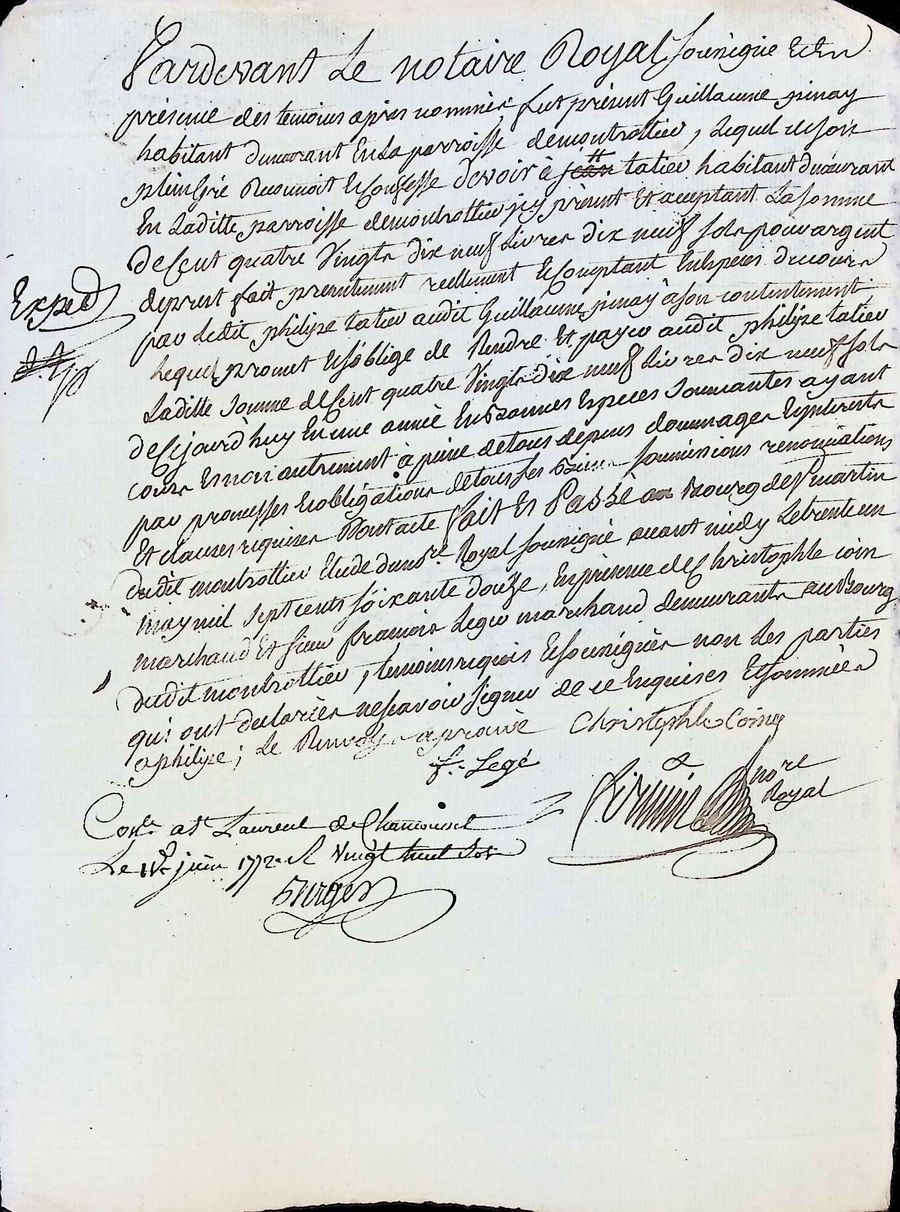 Pardevant Le notaire Royal sousigné Et En
présence des temoins apres nommés, fut présent Guillaume pinay
habitant demeurant En La parroisse demontrottier, Lequel deson
plein Gré Reconnoit Et Confesse devoir à jean tatier habitant demeurant
En Laditte parroisse demontrottier jcy présent Et aceptant La somme
de Cent quatre Vingts dix neuf Livres dix neuf sols pour argent
de prest fait presentement reellement Et Comptant En Espèces du cours
par ledit philipe tatier audit Guillaume pinay à son contentement
Lequel promet Et s'oblige de Rendre Et payer audit philipe tatier
Laditte somme de Cent quatre Vingts dix neuf Livres dix neuf sols
de Cejourd'huy En une année En Bonnes Especes sonnantes ayant
cours Et non autrement à peine de tous depens dommages Et interests
par promesses Et obligations de tous ses biens soumissions renonciations
Et clauses requises Dont acte fait Et Passé au Bourg de St martin
dudit montrottier Etude du nre. Royal sousigné avant midy Le trente un
may mil sept cents soixante douze, En présence de Christophle coin
marchand Et sieur françois Legé marchand demeurants au Bourg
dudit montrottier, temoins requis Et sousignés non Les parties
qui ont declarées ne scavoir signer de ce Enquises Et sommées
a philipe; Le Renvoy aprouvé Christophle Coing
f. Legé
nore
Royal
Expéd
Conle. a St Laurent de Chamousset
Le juin 1772 R Vingt huit sols